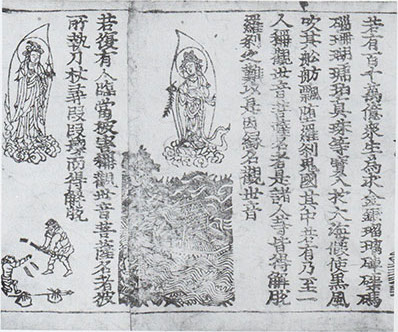 若有百千萬億衆生為求金銀瑠璃硨磲碼
碯珊瑚琥珀真珠等寶入於大海假使黒風
吹其舩舫飄堕羅刹鬼國其中若有乃至一
人稱觀世音菩薩名者是諸人等皆得解脫
羅刹之難以是因緣名觀世音
若復有人臨當被害稱觀世音菩薩名者彼
所執刀杖尋段段壞而得解脫